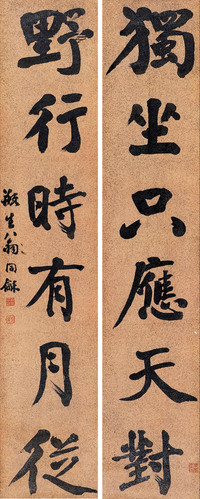 獨坐只應天對
野行時有月從
瓶生翁同龢